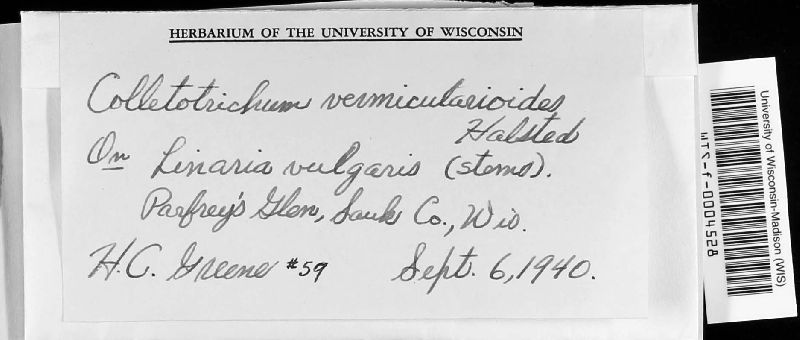 HERBARIUM OF THE UNIVERSITY OF WISCONSIN
Colletotrichum vermicularioides
Halsted
On Linaria vulgaris (stems).
Parfrey's Glen, Sauk Co., Wis.
H.C. Greene #59 Sept. 6, 1940.
University of Wisconsin-Madison (WIS)
WIS-f-0004528